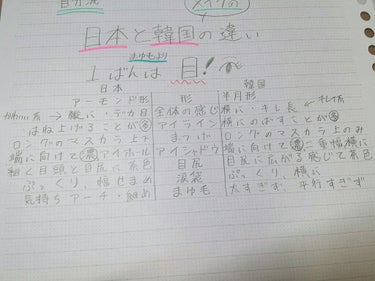 自分流
メイクの
日本と韓国の違い
まゆもより
1ばんは目!
日本 韓国
アーモンド形 形 半月形
かわいい系→縦に・デカ目 全体の感じ 横に・キレ長 ←キレイ系
はね上げることが多 アイライン 横にのばすことが多
ロングのマスカラ上下 まつげ ロングのマスカラ上のみ
端に向けて濃アイホール アイシャドウ 端に向けて濃二重幅横に
細く目頭と目尻に茶色 目尻 目尻に広がる感じで茶色
ぷっくり、幅せまめ 涙袋 ぷっくり、横に
気持ちアーチ・細め まゆ毛 太すぎず、平行すぎず